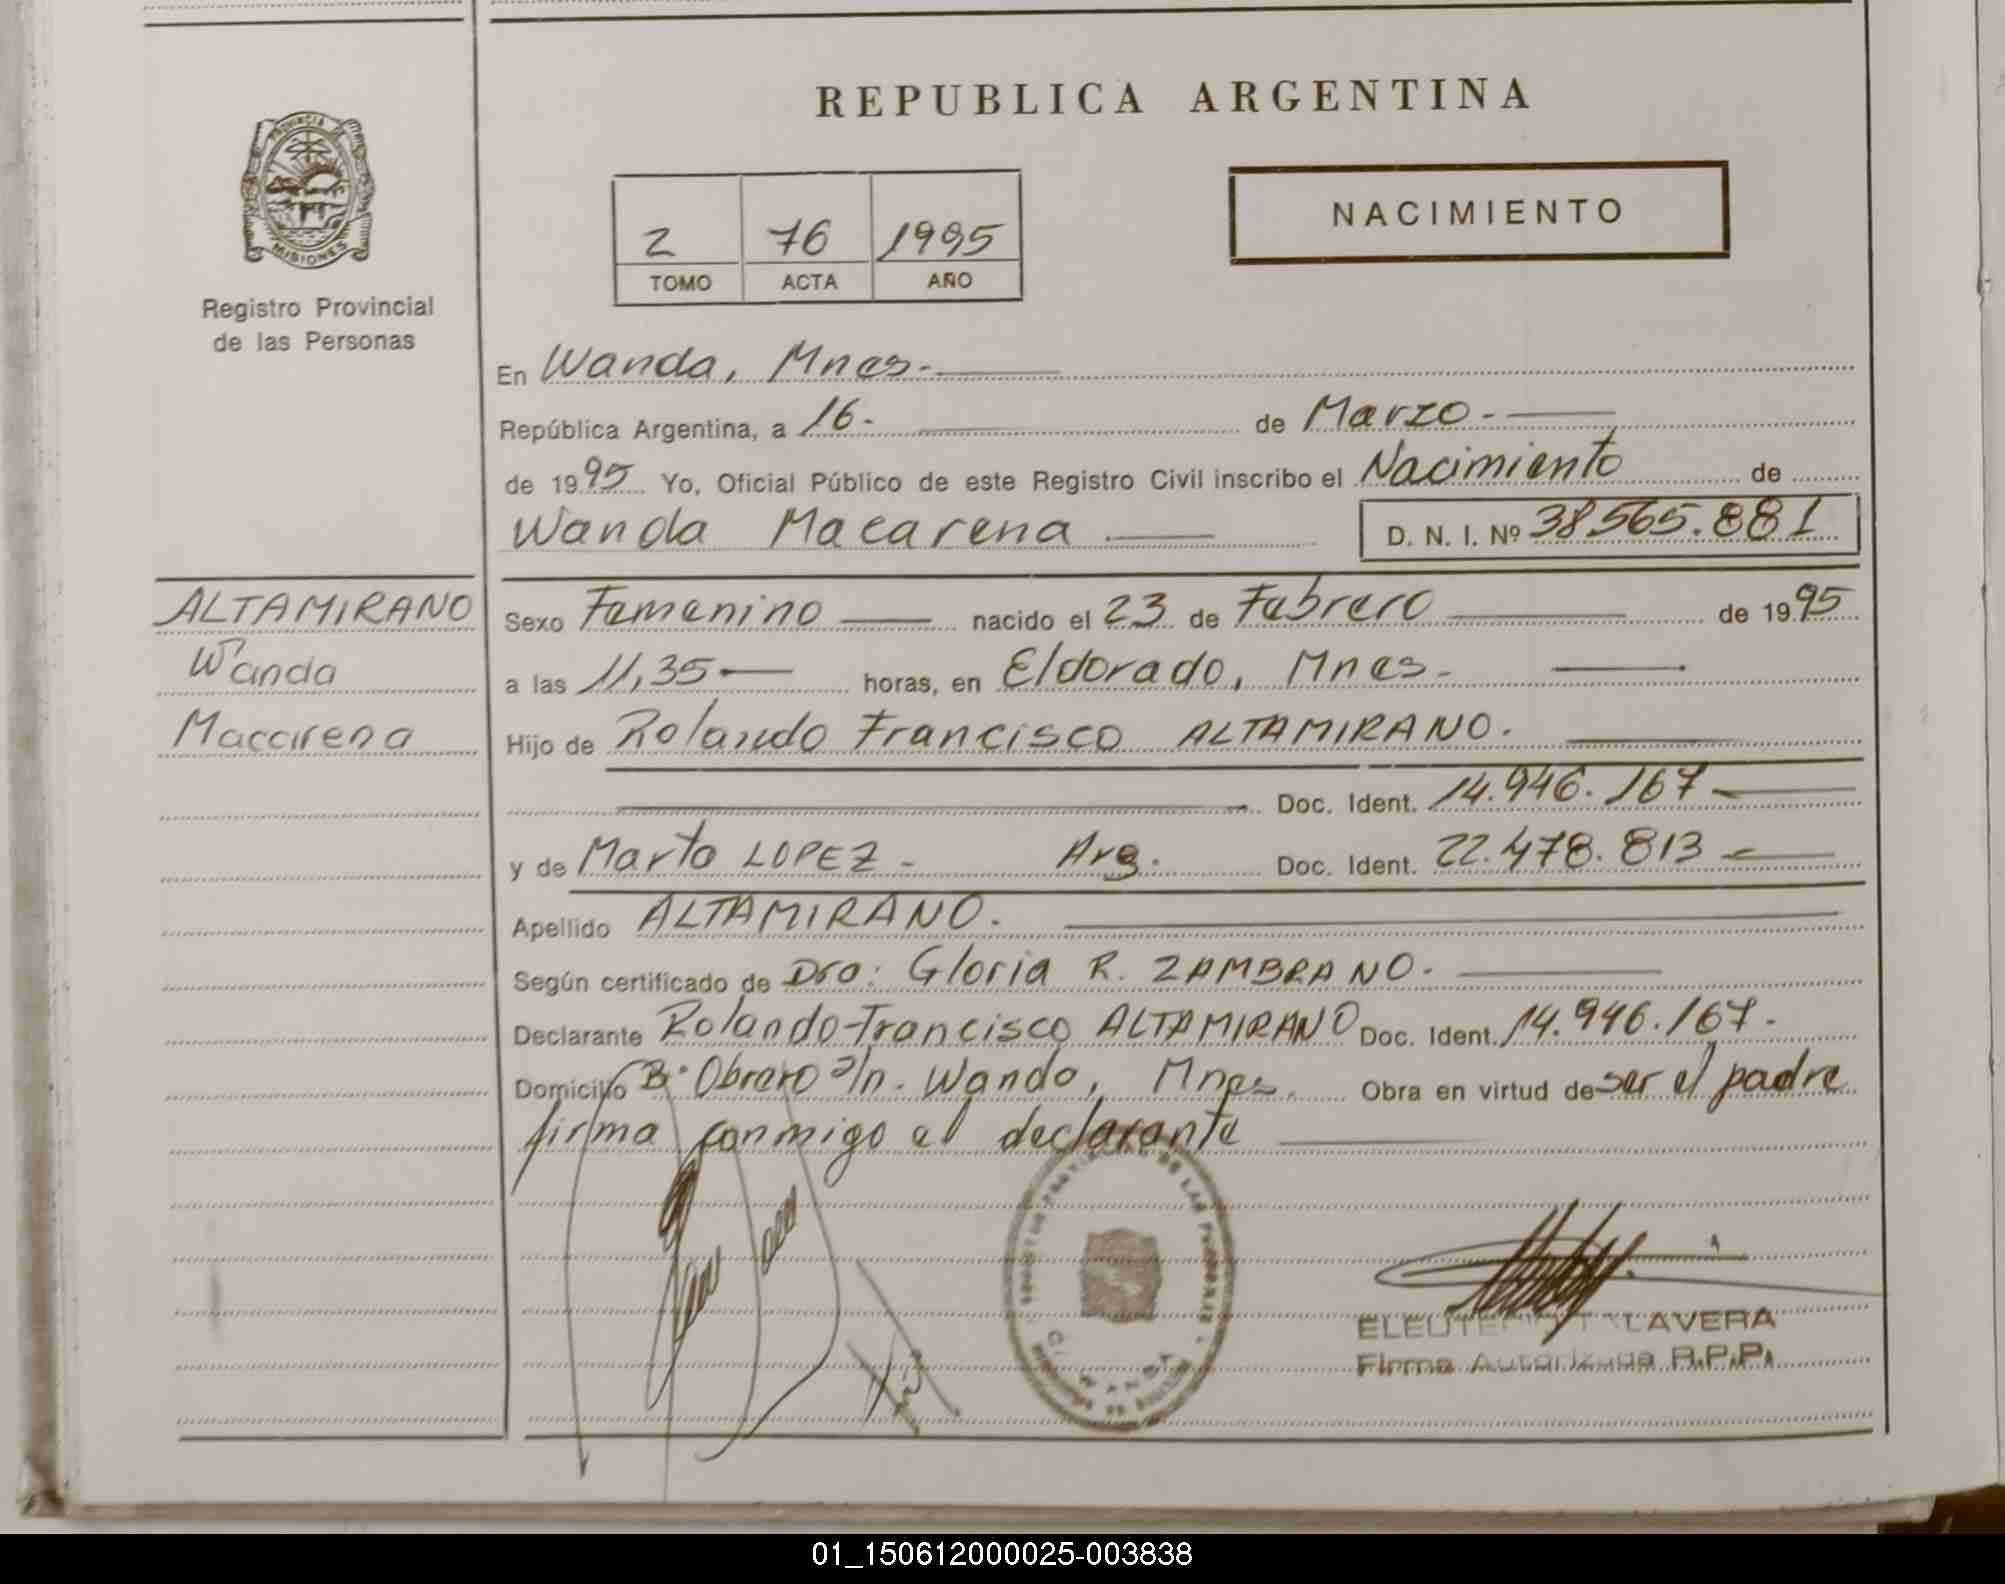 PROVINCIA DE
MISIONES
Registro Provincial
de las Personas
REPUBLICA ARGENTINA
2 76 1995
TOMO ACTA AÑO
NACIMIENTO
En Wanda, Mnes.
República Argentina, a 16. de Marzo.
de 1995 Yo, Oficial Público de este Registro Civil inscribo el Nacimiento de
Wanda Macarena D. N. I. Nº 38.565.881
ALTAMIRANO
Wanda
Macarena
Sexo Femenino nacido el 23 de Febrero de 1995
a las 11,35 horas, en Eldorado, Mnes.
Hijo de Rolando Francisco ALTAMIRANO.
Doc. Ident. 14.946.167
y de Marta LOPEZ - Arg. Doc. Ident. 22.478.813
Apellido ALTAMIRANO.
Según certificado de Dra: Gloria R. ZAMBRANO.
Declarante Rolando Francisco ALTAMIRANO Doc. Ident. 14.946.167.
Domicilio B° Obrero s/n. Wanda, Mnes. Obra en virtud de ser el padre
firma conmigo el declarante
DE LAS PERSONAS
WANDA
TALAVERA
Firma Autorizada R.P.P.
01_150612000025-003838